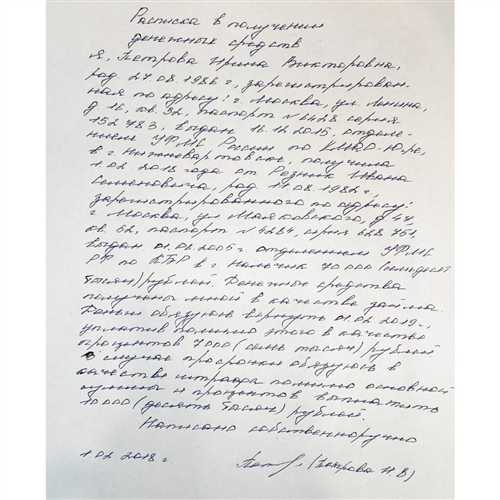 Расписка в получении
денежных средств
Я, Петрова Ирина Викторовна,
род 27.08.1986 г, зарегистрирован-
ная по адресу: г. Москва, ул. Ленина,
д 16, кв. 32, паспорт № 4428 серия
152 783, выдан 16.12.2015, отделе-
нием УФМС России по ХМАО-Югре,
в г. Нижневартовске, получила
1.02 2018 года от Резник Ивана
Семеновича, род 11.08.1982 г,
зарегистрированного по адресу:
г. Москва, ул Маяковского, д 44,
кв. 62, паспорт № 4284, серия 628 751,
выдан 01.02.2005 г отделением УФМС
РФ по КБР в г. Нальчик 70 000 (семьдесят
тысяч) рублей. Денежные средства
получены мной в качестве займа.
Деньги обязуюсь вернуть 01.02.2019 г.,
уплатив помимо этого в качестве
процентов 7000 (семь тысяч) рублей
В случае просрочки обязуюсь в
качестве штрафа помимо основной
суммы и процентов выплатить
10 000 (десять тысяч) рублей.
Написано собственноручно
1.02 2018 г (Петрова И.В)